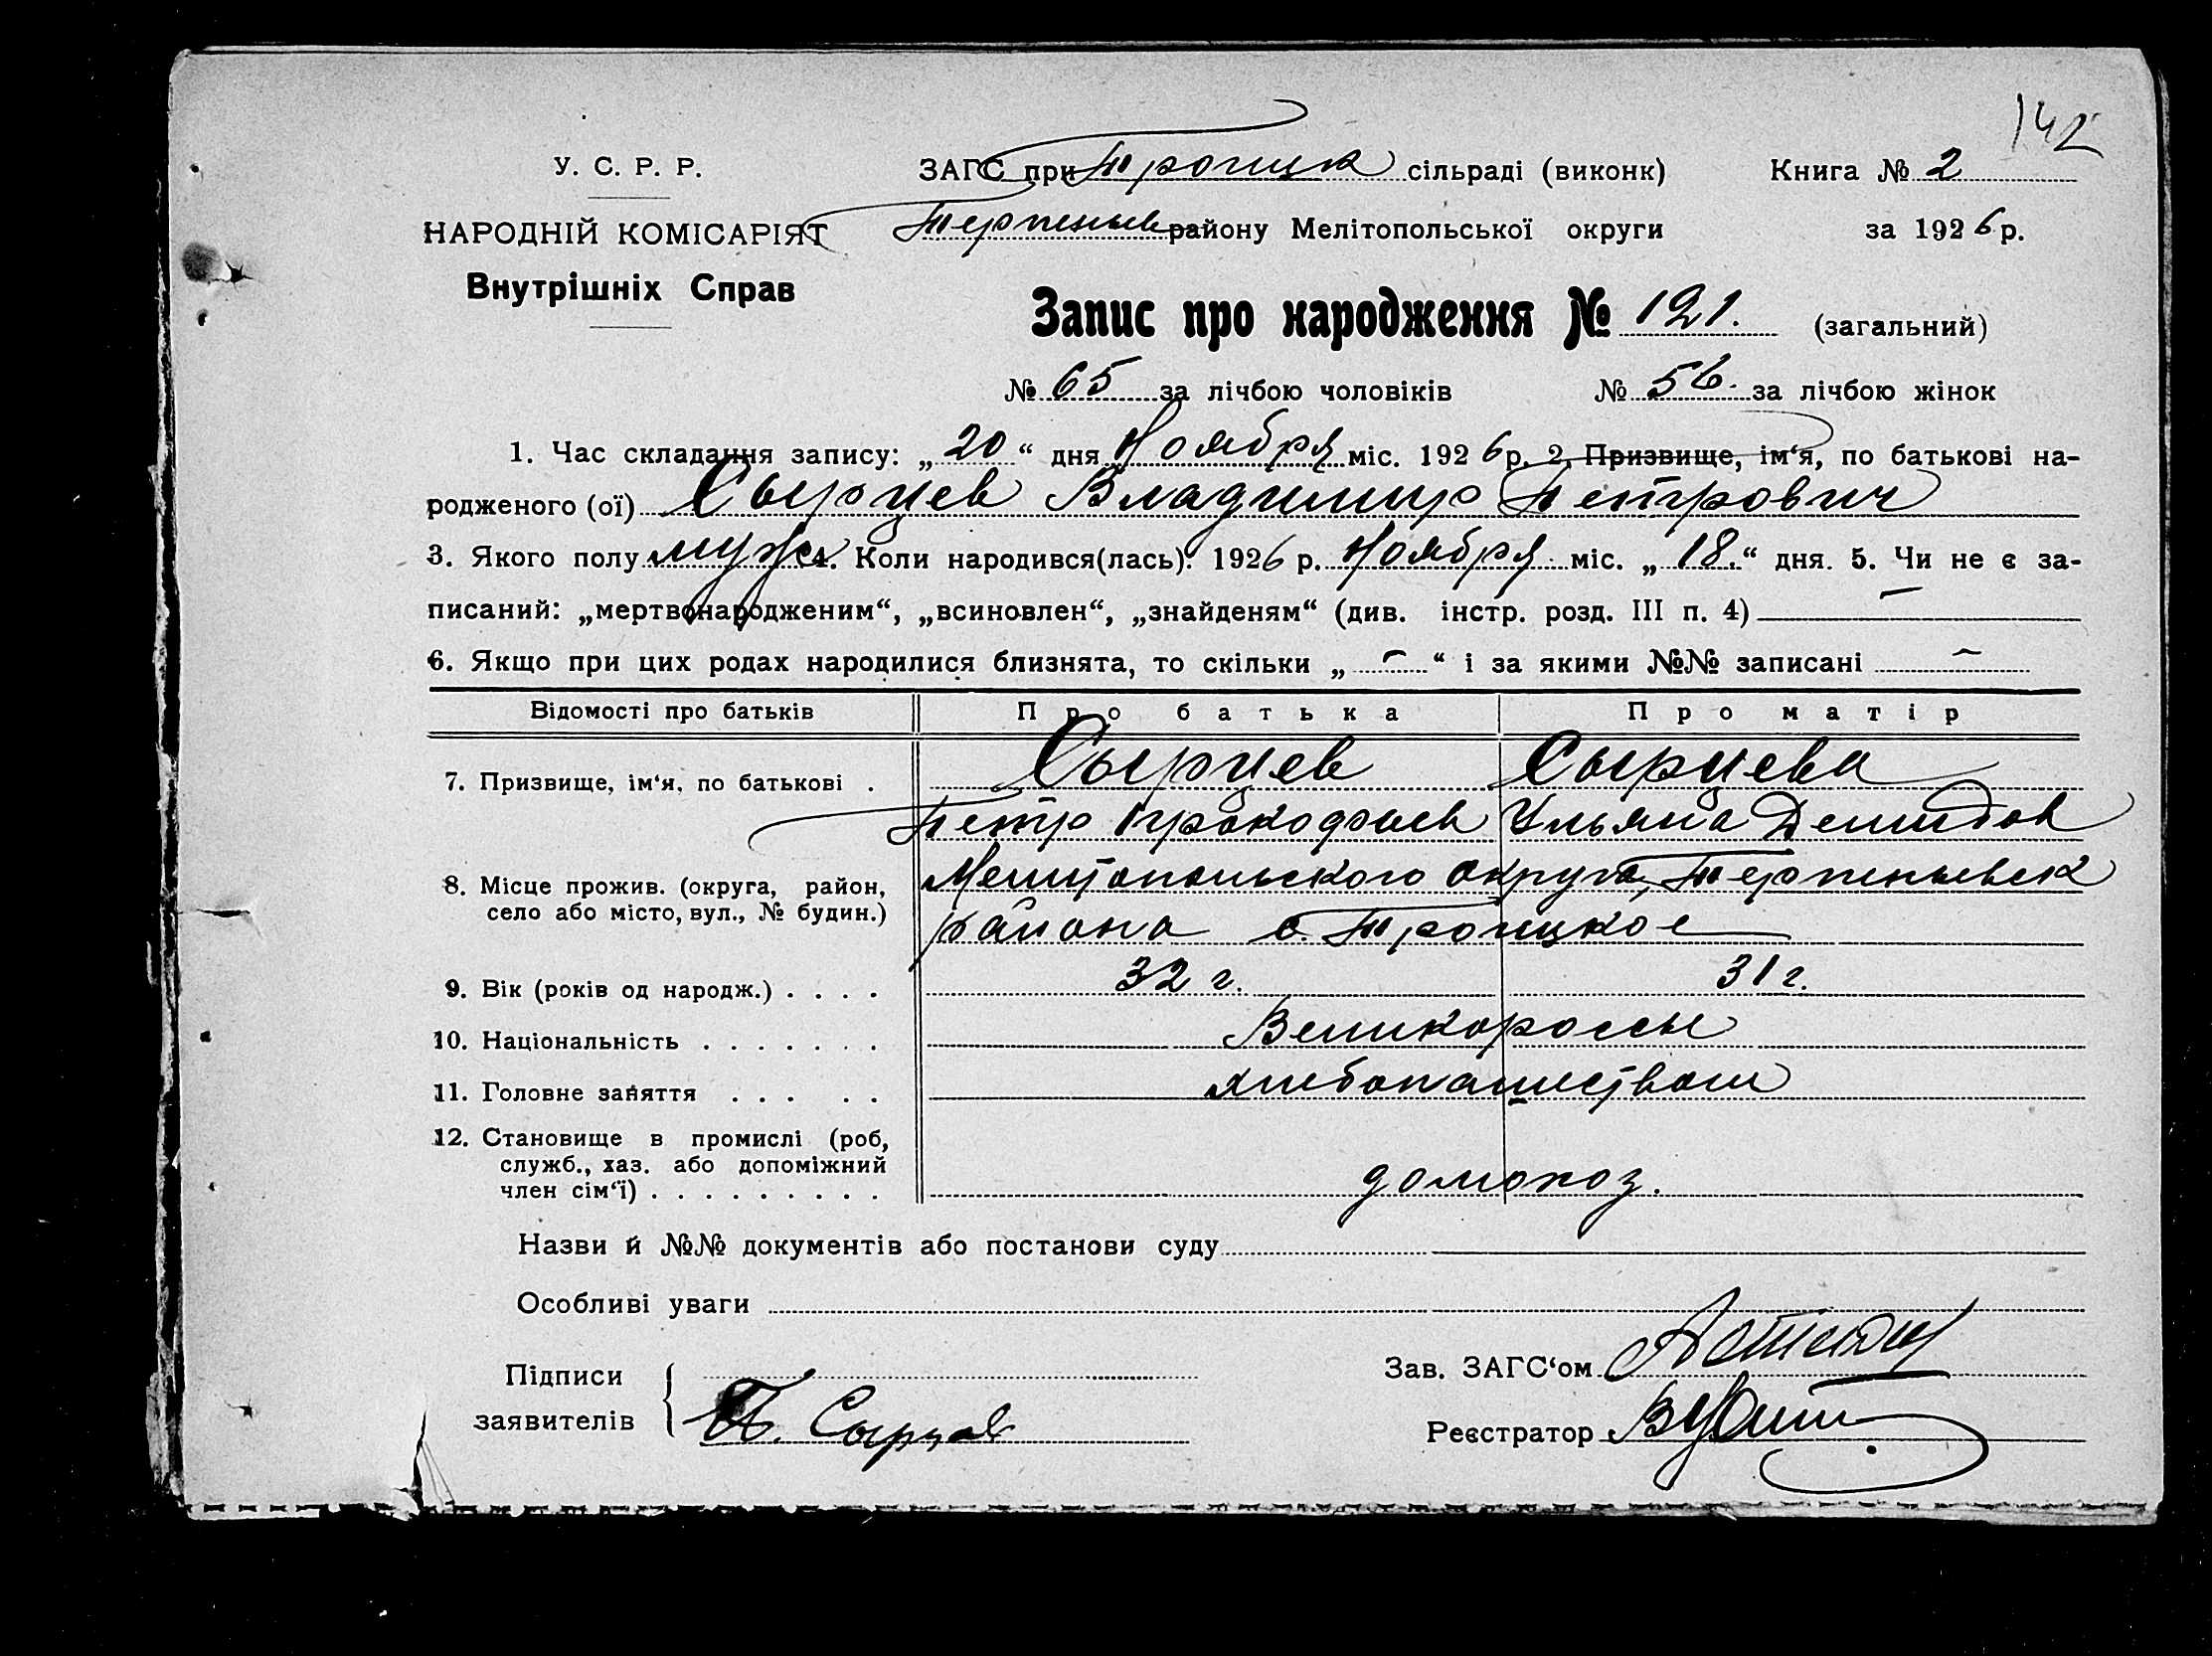 142
У. С. Р. Р. ЗАГС при Троицк сільраді (виконк) Книга № 2
НАРОДНІЙ КОМІСАРІЯТ Терпеньев району Мелітопольської округи за 1926 р.
Внутрішніх Справ
Запис про народження № 121. (загальний)
№ 65 за лічбою чоловіків № 56. за лічбою жінок
1. Час складання запису: „20“ дня Ноября міс. 1926 р. 2. Призвище, ім‘я, по батькові на-
родженого (ої) Сырцев Владимир Петрович
3. Якого полу муж 4. Коли народився(лась): 1926 р. Ноября міс. „18.“ дня. 5. Чи не є за-
писаний: „мертвонародженим“, „всиновлен“, „знайденям“ (див. інстр. розд. III п. 4) —
6. Якщо при цих родах народилися близнята, то скільки „—“ і за якими №№ записані —
Відомості про батьків Про батька Про матір
7. Призвище, ім‘я, по батькові . Сырцев Сырцева
Петр Прокофьев Ульяна Демидов
8. Місце прожив. (округа, район, Мелитопольского округа, Терпеньевск
село або місто, вул., № будин.) района с. Троицкое
9. Вік (років од народж.) . . . . 32 г. 31 г.
10. Національність . . . . . . . Великороссы
11. Головне заняття . . . . . хлебопашеством
12. Становище в промислі (роб,
служб., хаз. або допоміжний
член сім‘ї) . . . . . . . . . домохоз.
Назви й №№ документів або постанови суду
Особливі уваги
Підписи Зав. ЗАГС‘ом
заявителів П. Сырцев Реєстратор